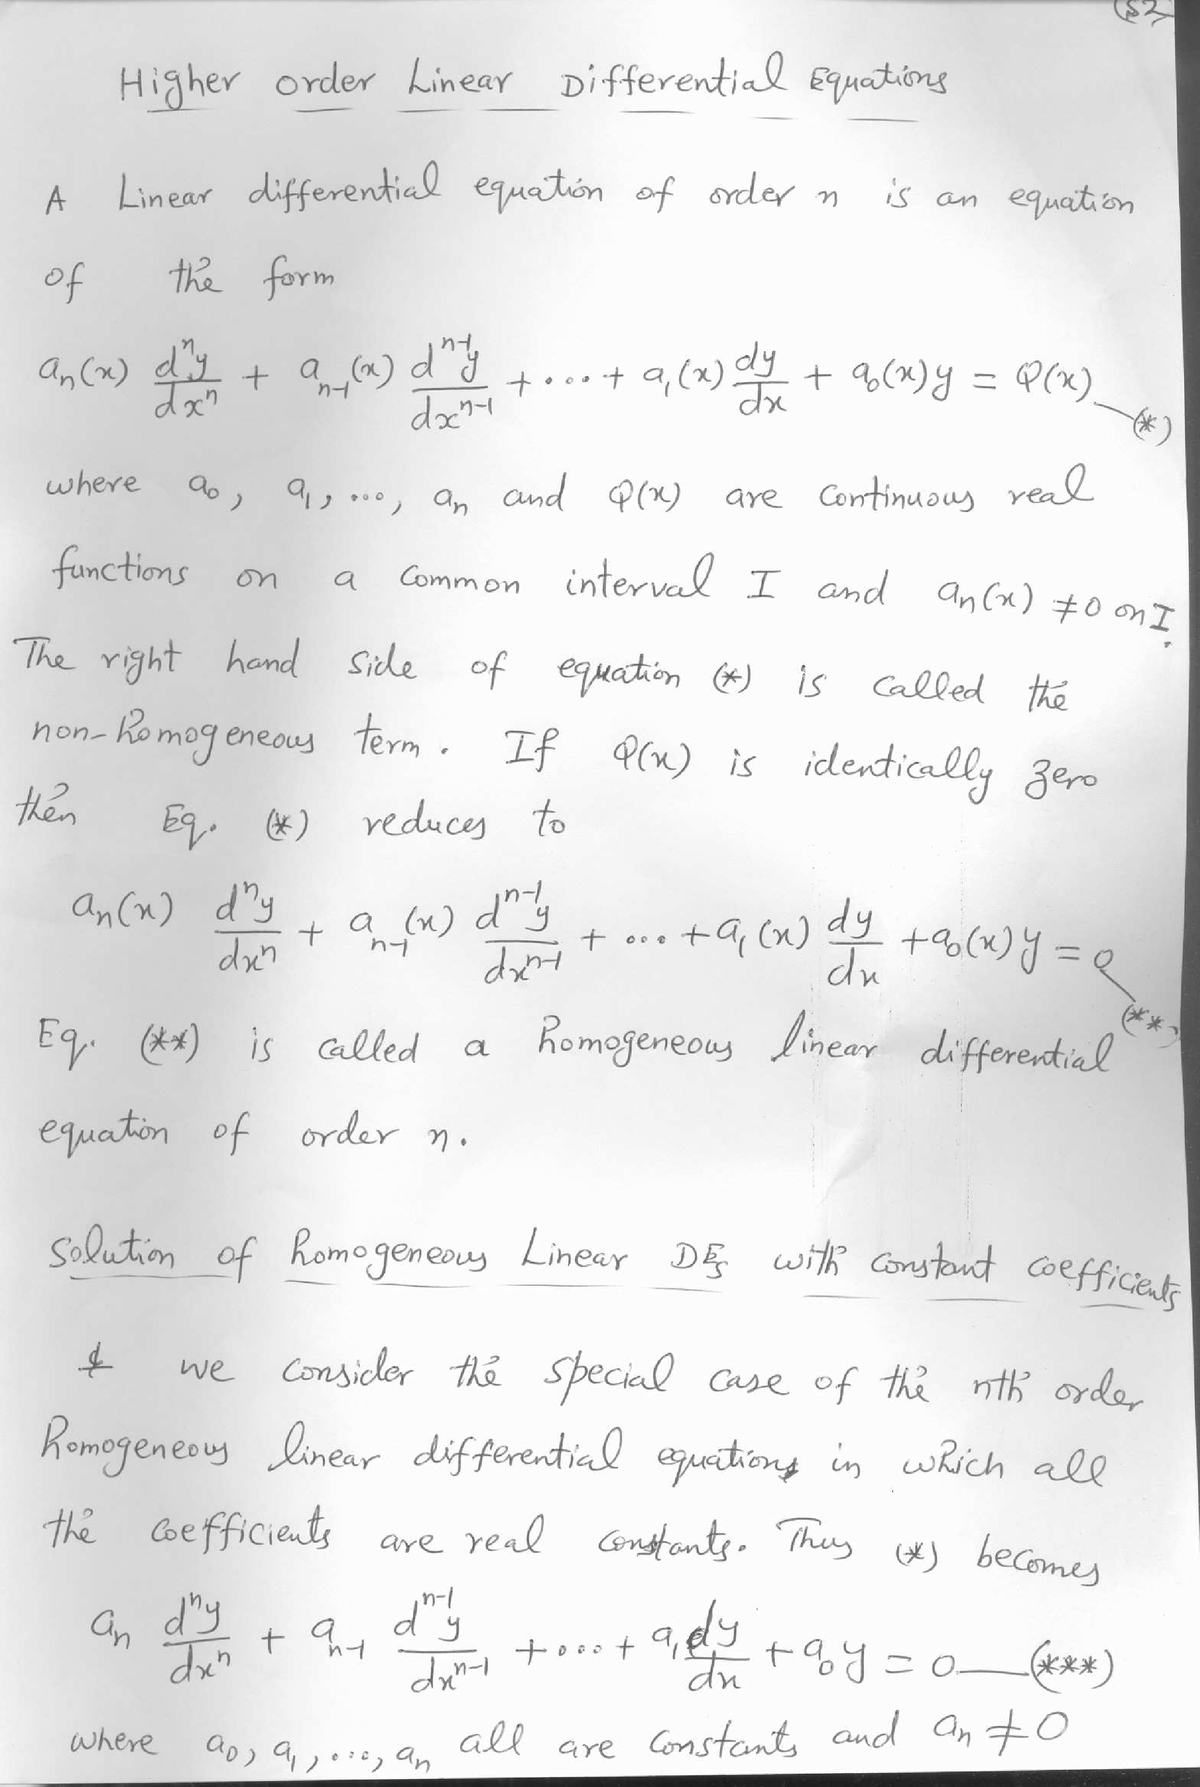 (52)
Higher order Linear Differential Equations
A Linear differential equation of order n is an equation
of the form
aₙ(x) dⁿy/dxⁿ + aₙ₋₁(x) dⁿ⁻¹y/dxⁿ⁻¹ + ... + a₁(x) dy/dx + a₀(x)y = Q(x) —(*)
where a₀, a₁, ..., aₙ and Q(x) are continuous real
functions on a common interval I and aₙ(x) ≠ 0 on I.
The right hand side of equation (*) is called the
non-homogeneous term. If Q(x) is identically zero
then Eq. (*) reduces to
aₙ(x) dⁿy/dxⁿ + aₙ₋₁(x) dⁿ⁻¹y/dxⁿ⁻¹ + ... + a₁(x) dy/dx + a₀(x)y = 0 —(**)
Eq. (**) is called a homogeneous linear differential
equation of order n.
Solution of homogeneous Linear DEs with constant coefficients
we consider the special case of the nth order
homogeneous linear differential equations in which all
the coefficients are real constants. Thus (*) becomes
aₙ dⁿy/dxⁿ + aₙ₋₁ dⁿ⁻¹y/dxⁿ⁻¹ + ... + a₁ dy/dx + a₀y = 0 —(***)
where a₀, a₁, ..., aₙ all are constants and aₙ ≠ 0